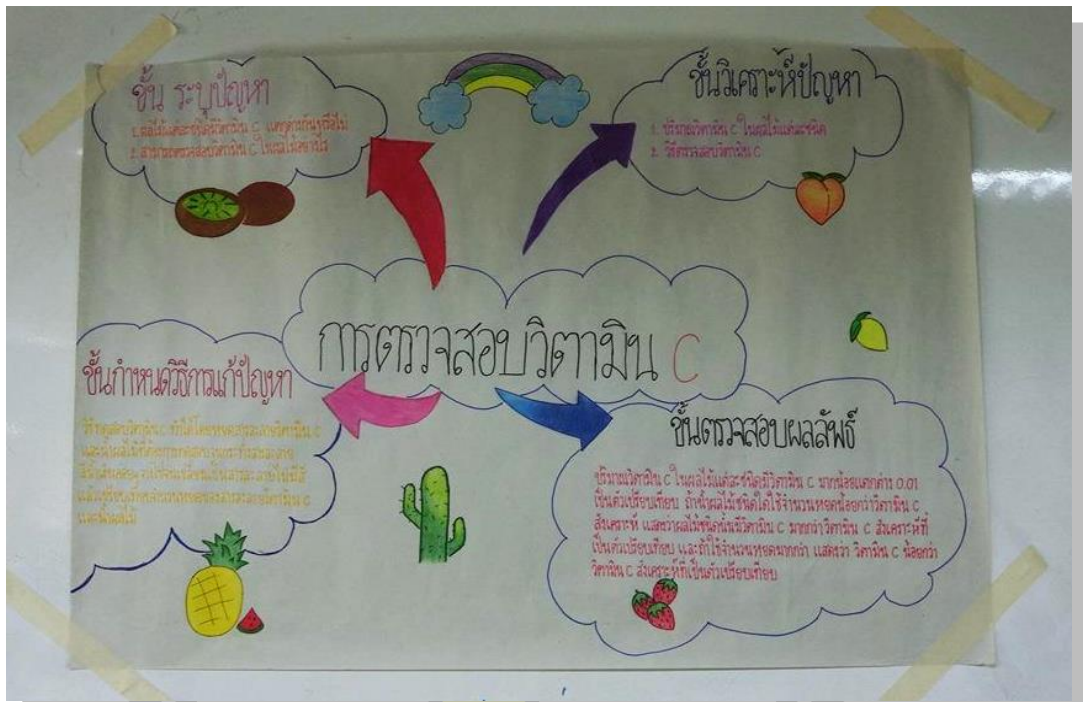 ขั้น ระบุปัญหา
1. ผลไม้แต่ละชนิดมีวิตามิน C แตกต่างกันหรือไม่
2. สามารถตรวจสอบวิตามิน C ในผลไม้อย่างไร
ขั้นวิเคราะห์ปัญหา
1. ปริมาณวิตามิน C ในผลไม้แต่ละชนิด
2. วิธีตรวจสอบวิตามิน C
การตรวจสอบวิตามิน C
ขั้นกำหนดวิธีการแก้ปัญหา
วิตามิน C ทำได้โดยหยดสารละลายวิตามิน C
และน้ำผลไม้ที่ต้องการทดสอบ
แล้วเปรียบเทียบจำนวนหยดของสารละลายวิตามิน C
และน้ำผลไม้
ขั้นตรวจสอบผลลัพธ์
ปริมาณวิตามิน C ในผลไม้แต่ละชนิดมีวิตามิน C มากน้อยแตกต่าง 0.01
เป็นตัวเปรียบเทียบ ถ้าน้ำผลไม้ชนิดใดใช้จำนวนหยดน้อยกว่าวิตามิน C
สังเคราะห์ แสดงว่าผลไม้ชนิดนั้นมีวิตามิน C มากกว่าวิตามิน C สังเคราะห์ที่
เป็นตัวเปรียบเทียบ และถ้าใช้จำนวนหยดมากกว่า แสดงว่า วิตามิน C น้อยกว่า
วิตามิน C สังเคราะห์ที่เป็นตัวเปรียบเทียบ